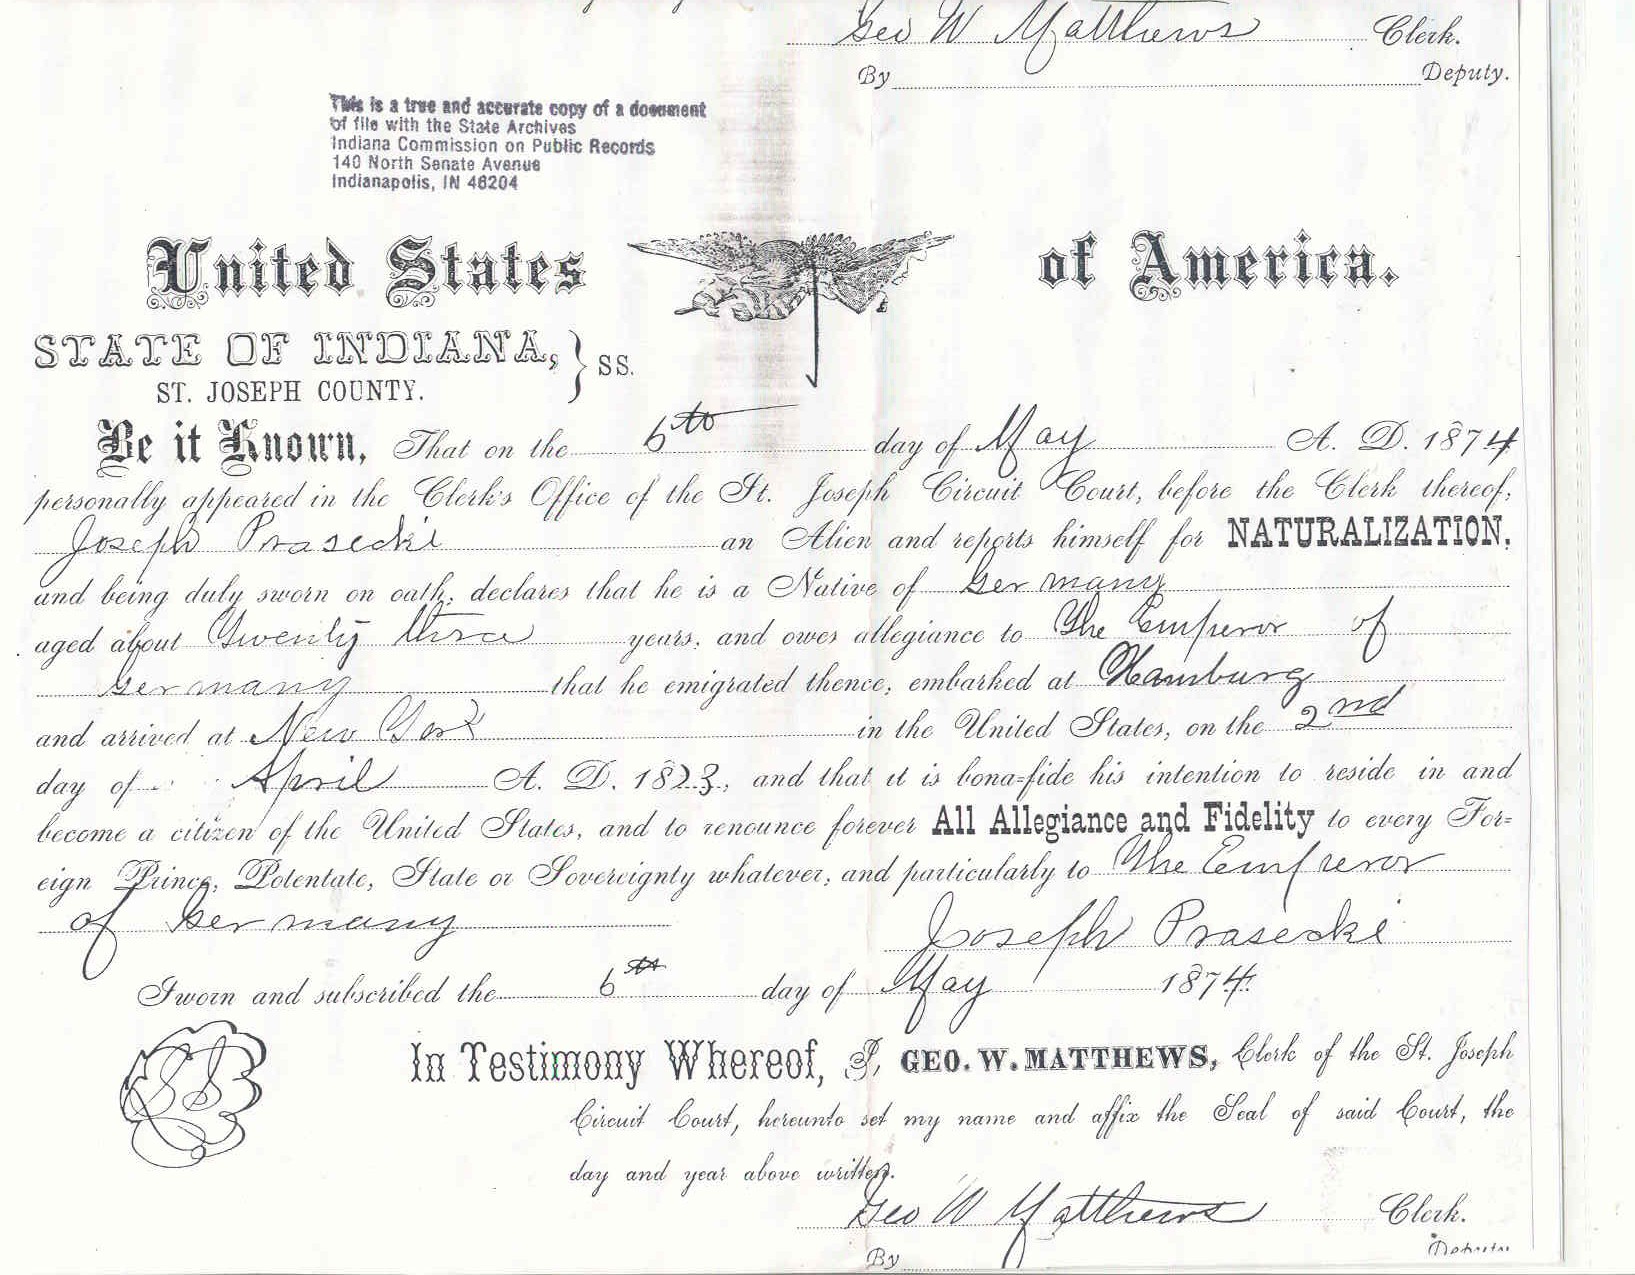 Geo W Matthews Clerk.
By Deputy.
This is a true and accurate copy of a document
of file with the State Archives
Indiana Commission on Public Records
140 North Senate Avenue
Indianapolis, IN 46204
United States of America.
STATE OF INDIANA, } SS.
ST. JOSEPH COUNTY.
Be it Known, That on the 6th day of May A. D. 1874
personally appeared in the Clerk's Office of the St. Joseph Circuit Court, before the Clerk thereof,
Joseph Prasecki an Alien and reports himself for NATURALIZATION,
and being duly sworn on oath, declares that he is a Native of Germany
aged about Twenty three years, and owes allegiance to The Emperor of
Germany that he emigrated thence, embarked at Hamburg
and arrived at New York in the United States, on the 2nd
day of April A. D. 1873, and that it is bona=fide his intention to reside in and
become a citizen of the United States, and to renounce forever All Allegiance and Fidelity to every For=
eign Prince, Potentate, State or Sovereignty whatever, and particularly to The Emperor
of Germany Joseph Prasecki
Sworn and subscribed the 6th day of May 1874.
In Testimony Whereof, I, GEO. W. MATTHEWS, Clerk of the St. Joseph
Circuit Court, hereunto set my name and affix the Seal of said Court, the
day and year above written.
Geo W Matthews Clerk.
By Deputy